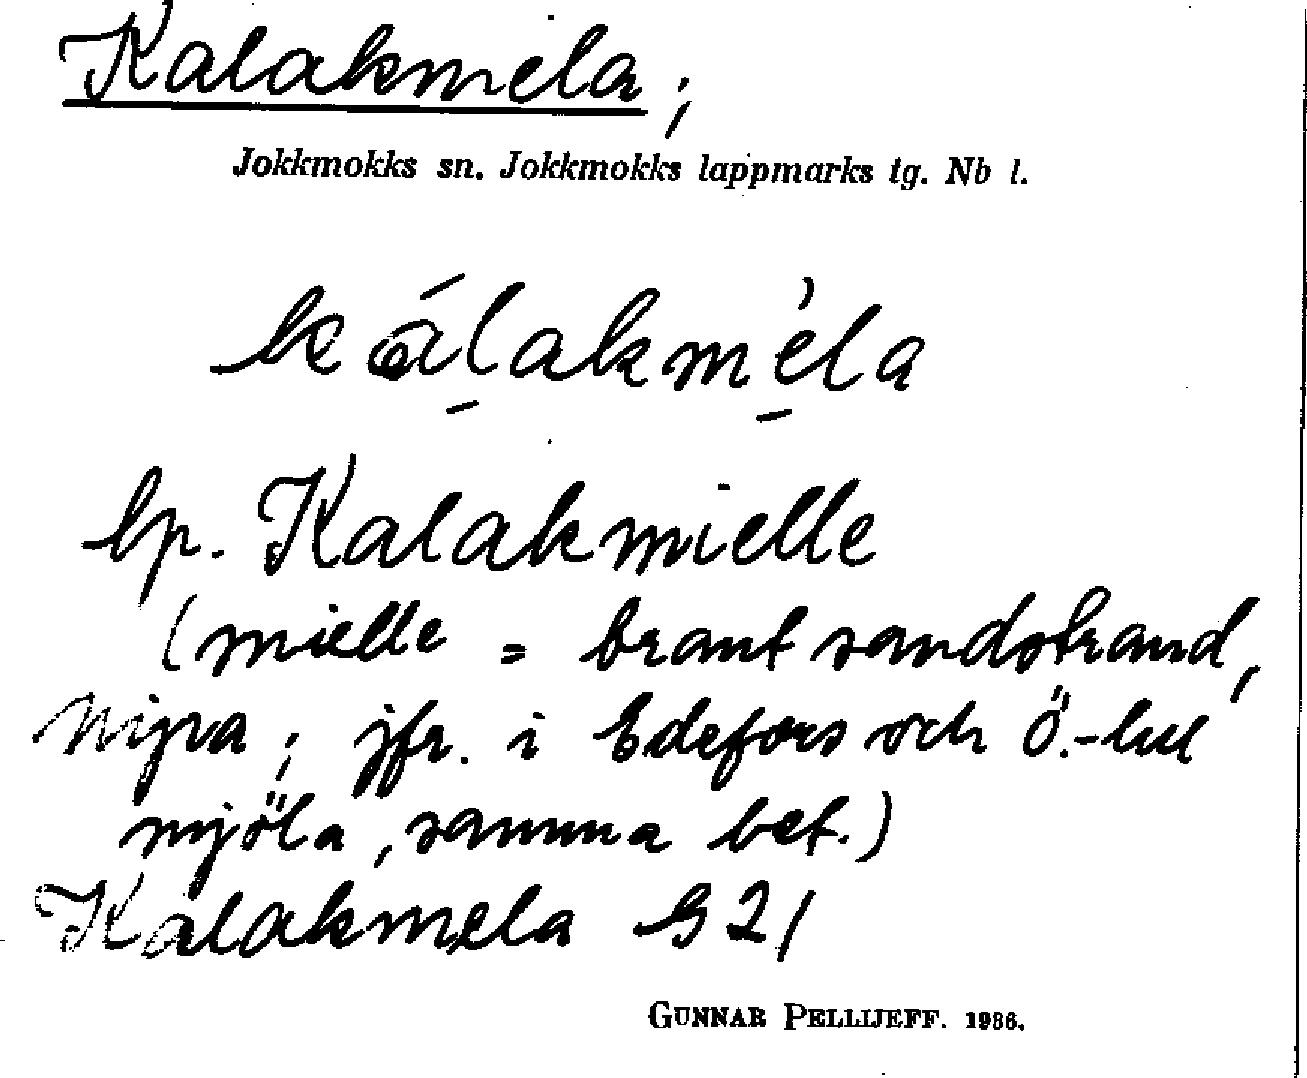 Kalakmela;
Jokkmokks sn. Jokkmokks lappmarks tg. Nb l.
kálakmèla
lp. Kalakmielle
(mielle = brant sandstrand,
nipa; jfr. i Edefors och Ö.-lul
mjöla, samma bet.)
Kalakmela G 21
GUNNAR PELLIJEFF. 1986.